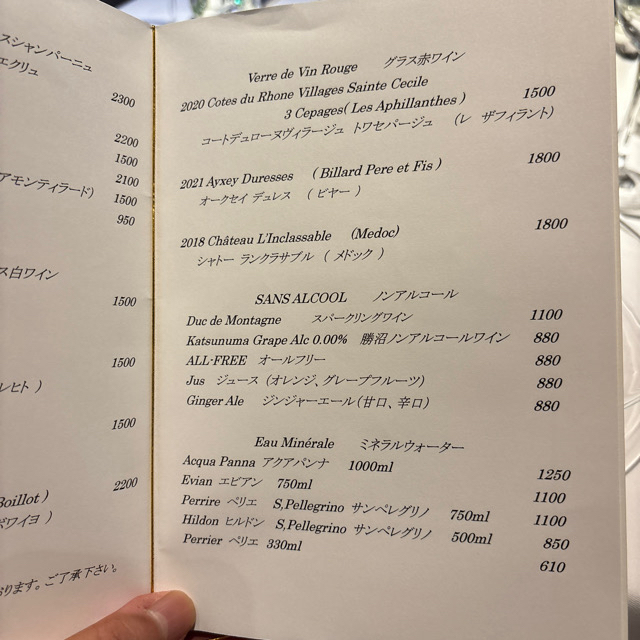 スシャンパーニュ
エクリュ
2300
2200
1500
2100
アモンティラード)
1500
950
ス白ワイン
1500
1500
レヒト )
1500
2200
Boillot )
ボワイヨ )
おります。ご了承下さい。
Verre de Vin Rouge グラス赤ワイン
2020 Cotes du Rhone Villages Sainte Cecile
3 Cepages( Les Aphillanthes ) 1500
コートデュローヌヴィラージュ トワセパージュ (レ ザフィラント)
2021 Ayxey Duresses ( Billard Pere et Fis ) 1800
オークセイ デュレス ( ビヤー )
2018 Château L'Inclassable (Medoc) 1800
シャトー ランクラサブル ( メドック )
SANS ALCOOL ノンアルコール
Duc de Montagne スパークリングワイン 1100
Katsunuma Grape Alc 0.00% 勝沼ノンアルコールワイン 880
ALL-FREE オールフリー 880
Jus ジュース (オレンジ、グレープフルーツ) 880
Ginger Ale ジンジャーエール(甘口、辛口) 880
Eau Minérale ミネラルウォーター
Acqua Panna アクアパンナ 1000ml 1250
Evian エビアン 750ml 1100
Perrire ペリエ S,Pellegrino サンペレグリノ 750ml 1100
Hildon ヒルドン S,Pellegrino サンペレグリノ 500ml 850
Perrier ペリエ 330ml 610